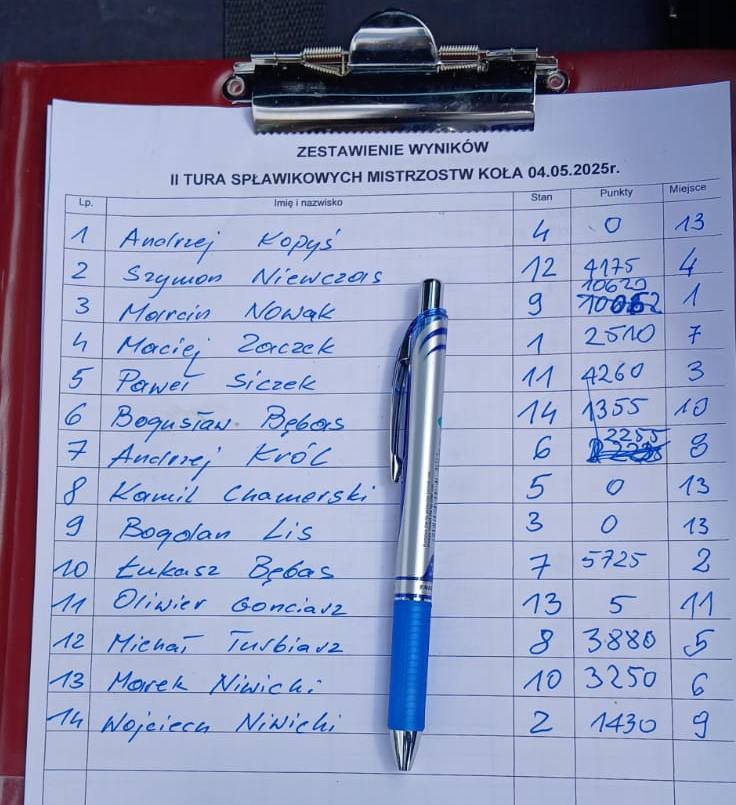 ZESTAWIENIE WYNIKÓW
II TURA SPŁAWIKOWYCH MISTRZOSTW KOŁA 04.05.2025r.
Lp. Imię i nazwisko Stan Punkty Miejsce
1 Andrzej Kopyś 4 0 13
2 Szymon Niewczas 12 4175 4
3 Marcin Nowak 9 10620 1
4 Maciej Zaczek 1 2510 7
5 Paweł Siczek 11 4260 3
6 Bogusław Bębas 14 1355 10
7 Andrzej Król 6 2255 8
8 Kamil Chamerski 5 0 13
9 Bogdan Lis 3 0 13
10 Łukasz Bębas 7 5725 2
11 Oliwier Gonciarz 13 5 11
12 Michał Turbiarz 8 3880 5
13 Marek Niwicki 10 3250 6
14 Wojciech Niwicki 2 1430 9